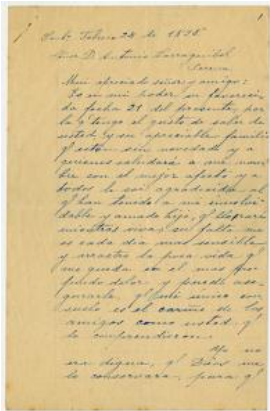 Febrero 28 de 1898
Señor D. Antonio
Muy apreciado señor y amigo:
Es en mi poder su favorecida
de fecha 21 del presente, por
la q' tengo el gusto de saber de
usted y su apreciable familia
q' estén sin novedad y a
quienes saludará a mi nom-
bre con el mejor afecto y a
todos les soy agradecida al
q' han tenido a mi inolvi-
dable y amado hijo, q' lloraré
mientras viva; su falta me
es cada día mas sensible
y arrastro la poca vida q'
me queda en el mas pro-
fundo dolor y puedo ase-
gurarle, q' mi unico con-
suelo es el cariño de los
amigos como usted q'
lo comprendieron.
Yo no
era digna, q' Dios me
lo conservara, pues q'